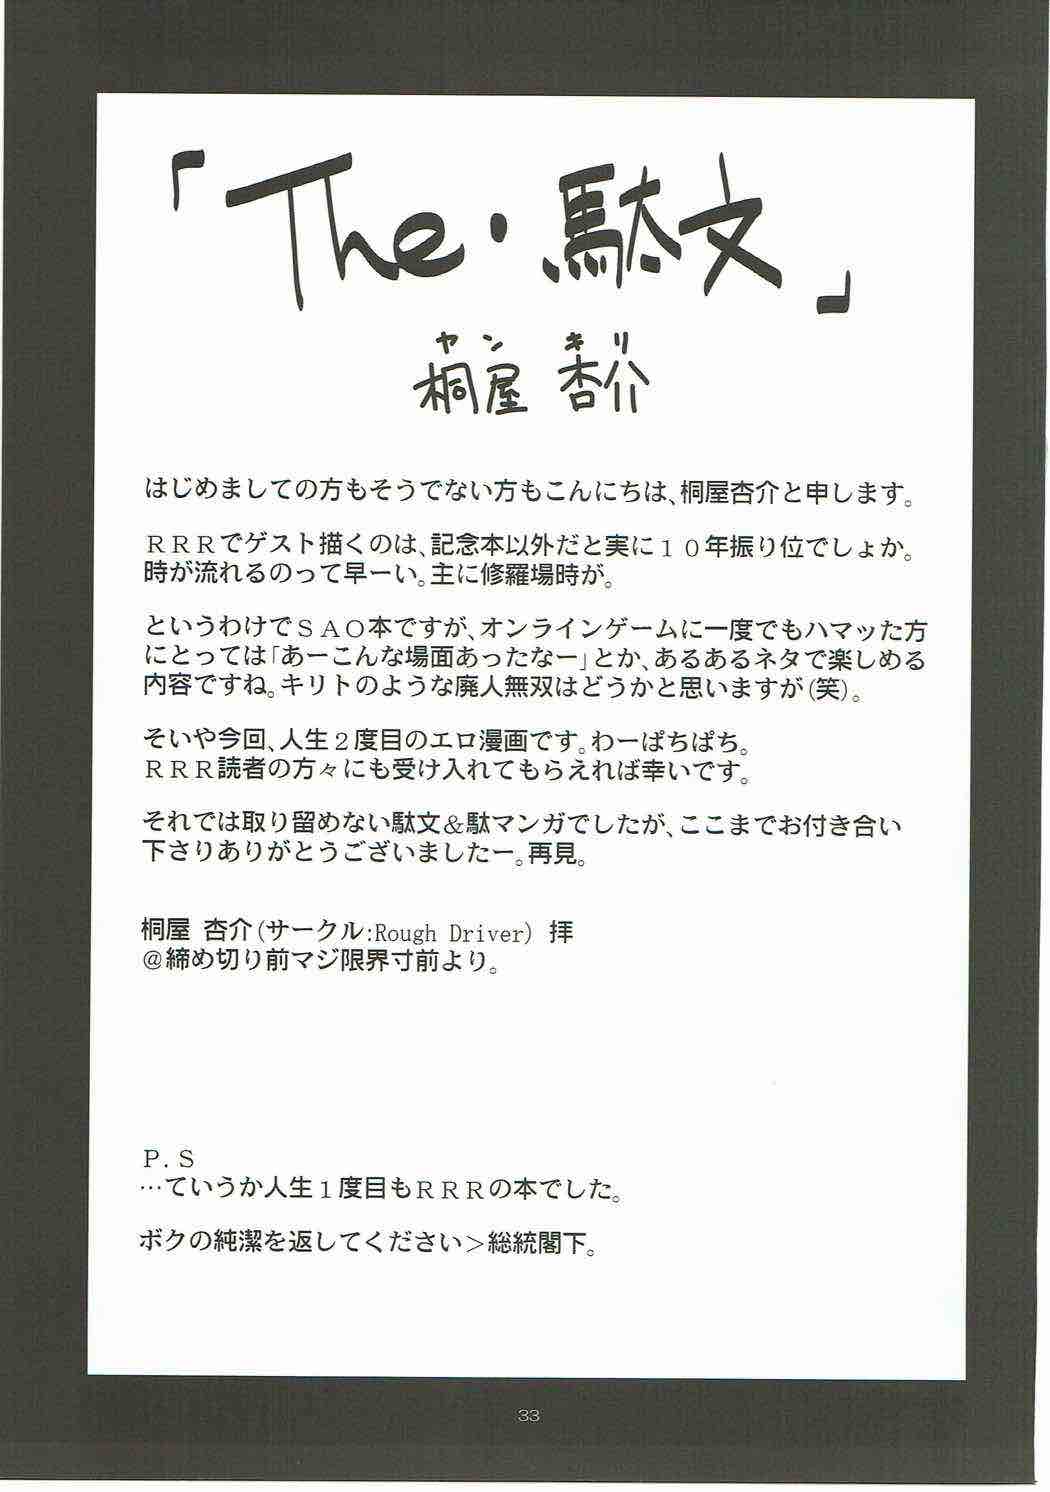 「The・駄文」
ヤン キリ
桐屋 杏介
はじめましての方もそうでない方もこんにちは、桐屋杏介と申します。
ＲＲＲでゲスト描くのは、記念本以外だと実に１０年振り位でしょか。
時が流れるのって早ーい。主に修羅場時が。
というわけでＳＡＯ本ですが、オンラインゲームに一度でもハマッた方
にとっては「あーこんな場面あったなー」とか、あるあるネタで楽しめる
内容ですね。キリトのような廃人無双はどうかと思いますが(笑)。
そいや今回、人生２度目のエロ漫画です。わーぱちぱち。
ＲＲＲ読者の方々にも受け入れてもらえれば幸いです。
それでは取り留めない駄文＆駄マンガでしたが、ここまでお付き合い
下さりありがとうございましたー。再見。
桐屋 杏介(サークル:Rough Driver) 拝
＠締め切り前マジ限界寸前より。
Ｐ.Ｓ
…ていうか人生１度目もＲＲＲの本でした。
ボクの純潔を返してください＞総統閣下。
33